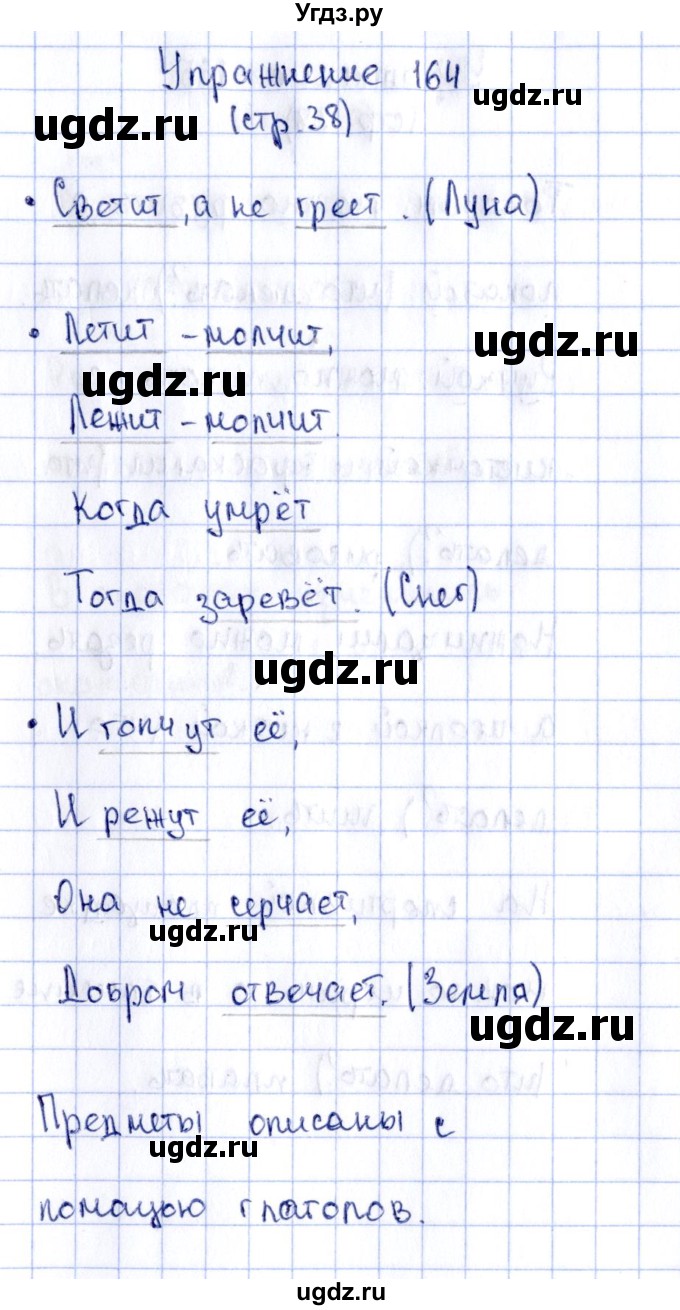 Угдз.ру
Упражнение 164
ugdz.ru
ugdz.ru
(стр. 38)
• Светит, а не греет. (Луна)
• Летит - молчит,
ugdz.ru
ugdz.ru
Лежит - молчит.
Когда умрёт
Тогда заревёт. (Снег)
ugdz.ru
• И топчут её,
И режут её,
Она не серчает,
ugdz.ru
Добром отвечает. (Земля)
ugdz.ru
Предметы описаны с
ugdz.ru
помощью глаголов.
ugdz.ru